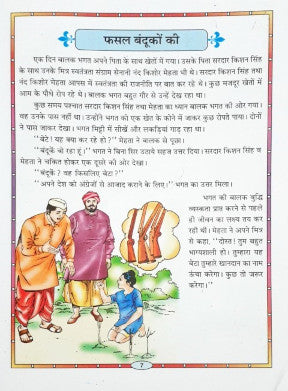 फसल बंदूकों की
एक दिन बालक भगत अपने पिता के साथ खेतों में गया। उसके पिता सरदार किशन सिंह
के साथ उनके मित्र स्वतंत्रता संग्राम सेनानी नन्द किशोर मेहता भी थे। सरदार किशन सिंह तथा
नंद किशोर मेहता आपस में स्वतंत्रता की राजनीति पर बात कर रहे थे। कुछ मजदूर खेतों में
आम के पौधे रोप रहे थे। बालक भगत बहुत गौर से उन्हें देख रहा था।
कुछ समय पश्चात सरदार किशन सिंह तथा मेहता का ध्यान बालक भगत की ओर गया।
वह उनके पास नहीं था। उन्होंने भगत को एक खेत के कोने में जाकर कुछ रोपते पाया। दोनों
ने पास जाकर देखा। भगत मिट्टी में सींखें और लकड़ियां गाड़ रहा था।
''बेटे! यह क्या कर रहे हो?'' मेहता ने बालक से पूछा।
''बंदूकें बो रहा हूं।'' भगत ने बिना सिर उठाये सहज उत्तर दिया। सरदार किशन सिंह व
मेहता ने चकित होकर एक दूसरे की ओर देखा।
''बंदूकें? वह किसलिए बेटा?''
''अपने देश को अंग्रेजों से आजाद कराने के लिए।'' भगत का उत्तर मिला।
भगत की बालक बुद्धि
व्यस्कता प्राप्त करने से पहले
ही जीवन का लक्ष्य तय कर
रही थी। मेहता ने अपने मित्र
से कहा, ''दोस्त! तुम बहुत
भाग्यशाली हो। तुम्हारा यह
बेटा तुम्हारे खानदान का नाम
ऊंचा करेगा। कुछ तो जरूर
करेगा।''
7